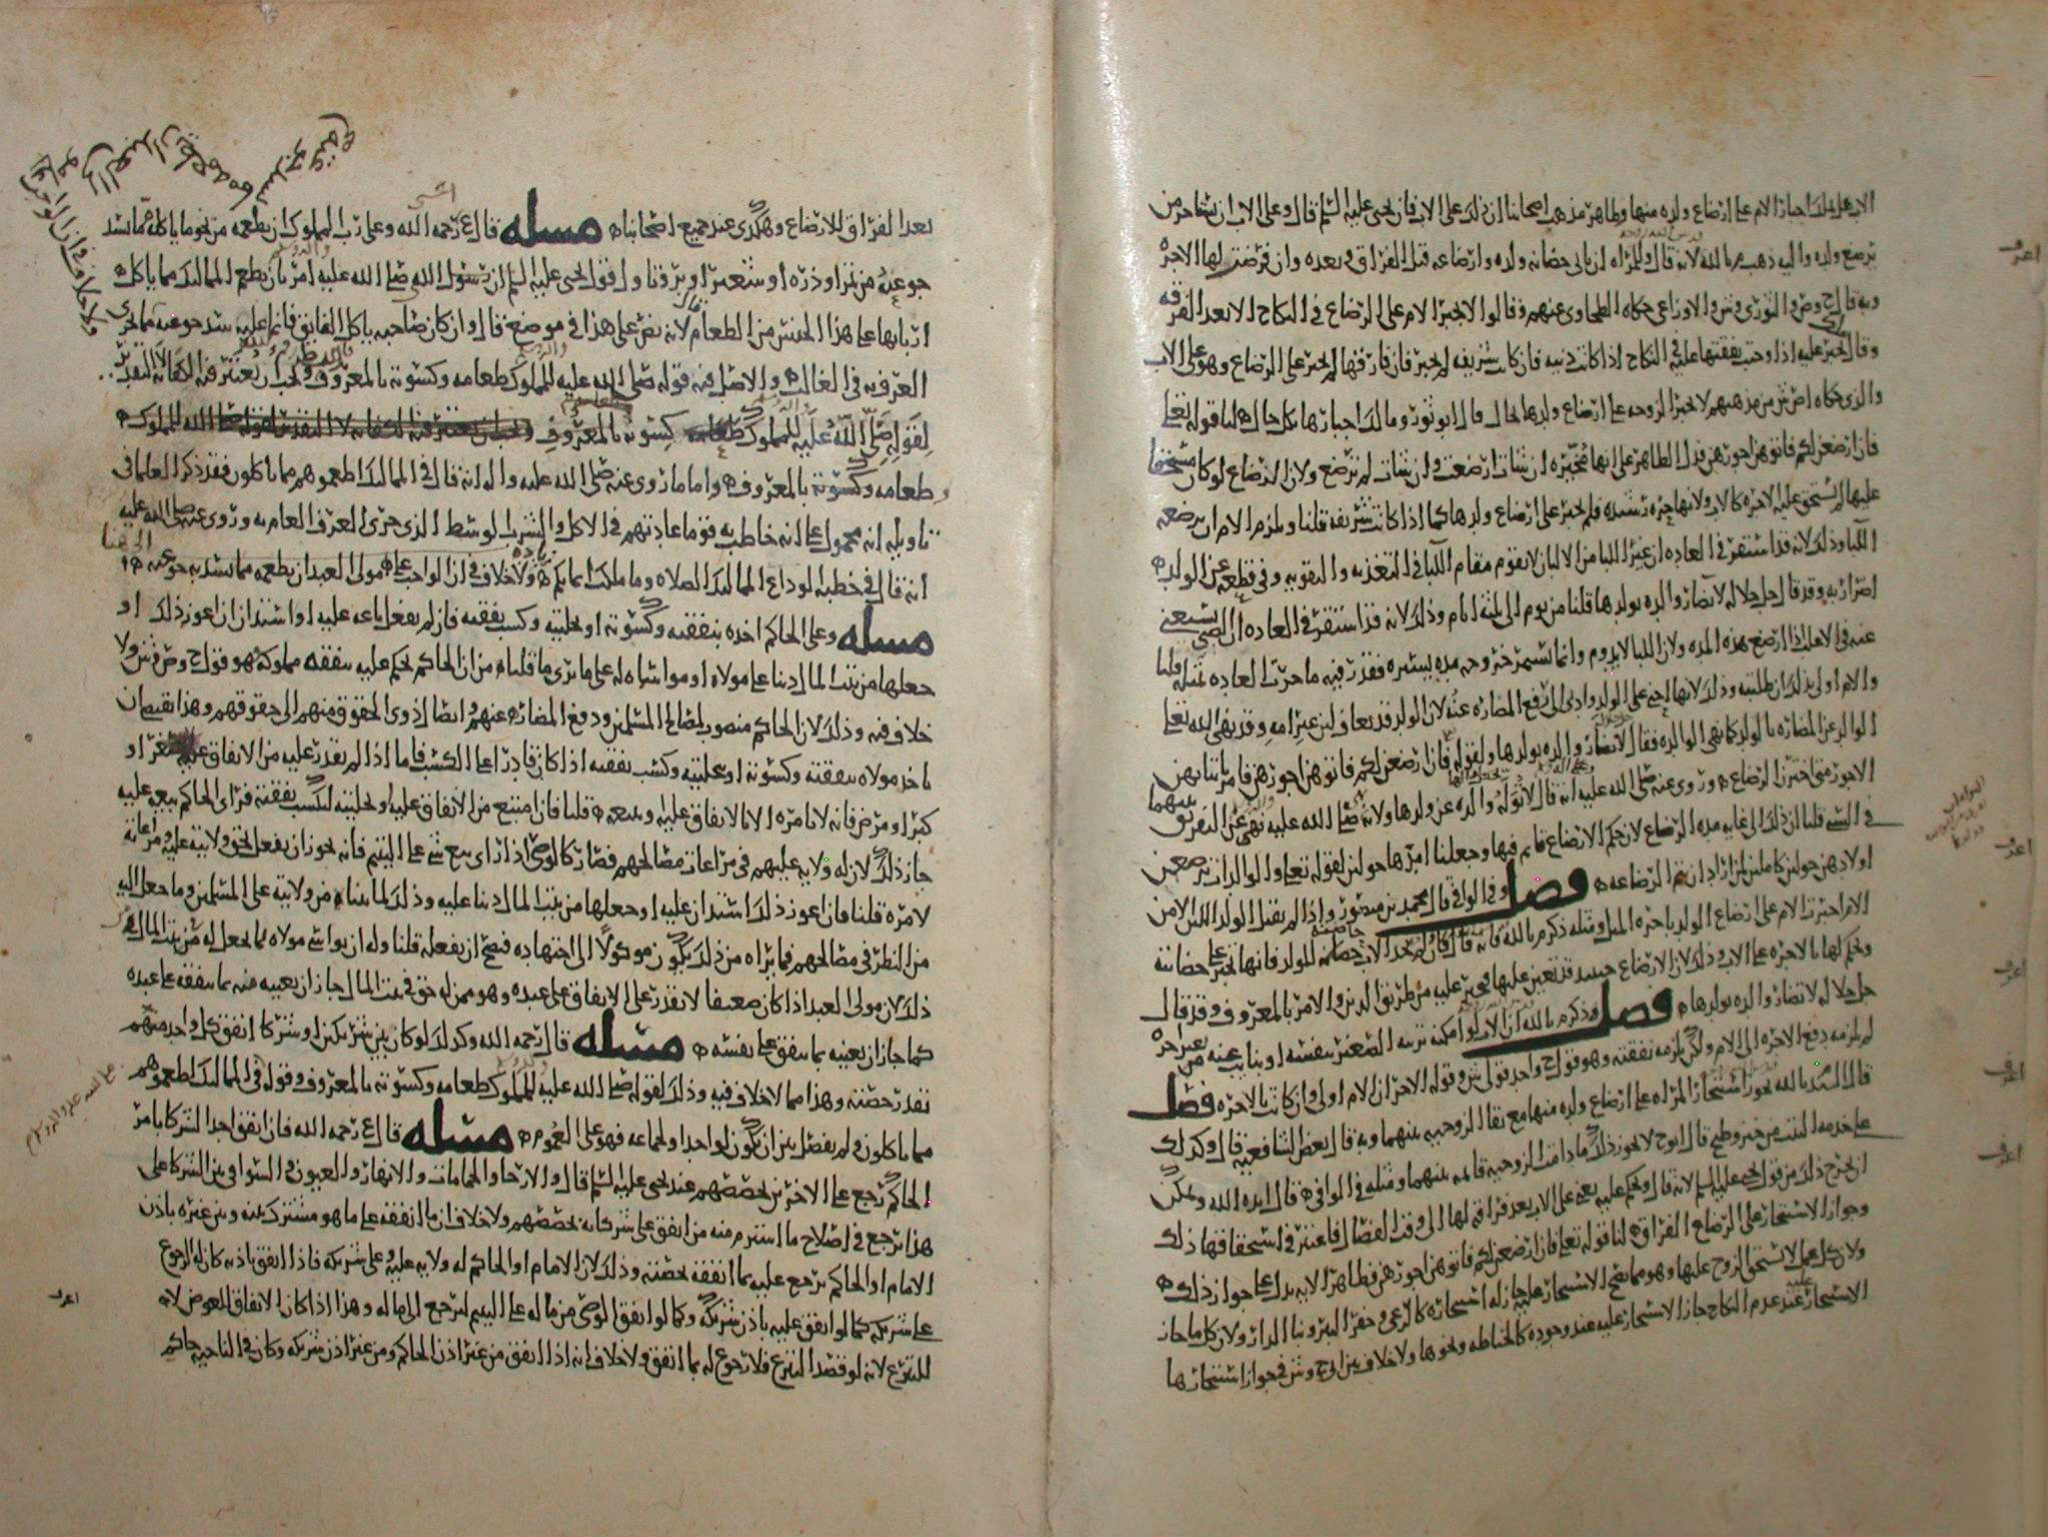 الاب على ذلك اجبار الام على ارضاع ولده منها وظاهر مذهب اصحابنا ان ذلك على الاب فان يحيى عليه السلم قال وعلى الاب ان يستاجر من
ترضع ولده واليه ذهب م بالله لانه قال وللمراه ان تابى حضانه ولده وارضاعه قبل الفراق وبعده وان فرضت لها الاجره
وبه قال ح وص والثوري وش والاوزاعي حكاه الطحاوي عنهم وقالوا لا تجبر الام على الرضاع في النكاح ولا بعد الفرقه
وقال تجبر عليه اذا وجب نفقتها عليه في النكاح اذا كانت دنيه فان كانت شريفه لم تجبر فان فارقها لم تجبر على الرضاع وهو على الاب
والذي حكاه اص ش من مذهبهم لا تجبر الزوجه على ارضاع ولدها بحال قال ابو ثور ومالك اجبارها بكل حال لنا قوله تعلى
فان ارضعن لكم فاتوهن اجورهن فدل الظاهر على انها مخيره ان شات ارضعت وان شات لم ترضع ولان الرضاع لو كان مستحقا
عليها لم تستحق عليه الاجره كالاب ولانها حره رشيده فلم تجبر على ارضاع ولدها كما اذا كانت شريفه قلنا ويلزم الام ان ترضعه
اللبا وذلك لانه قد استقر في العاده ان غير اللبا من الالبان لا يقوم مقام اللبا في التغذيه والتقويه وفي قطعه عن الولد
اضرار به وقد قال جل جلاله لا تضار والده بولدها قلنا من يوم الى ثلثه ايام وذلك لانه قد استقر في العاده ان الصبي يستغني
عنه في الاغلب اذا ارضع بهذه المده ولان اللبا لا يدوم وانما يستمر خروجه مده يسيره فقدر فيه ما جرت العاده بمثله قلنا
والام اولى بذلك ان طلبته وذلك لانها احنى على الولد وادنى الى دفع المضاره عنه لان الولد قد يعاف لبن غير امه وقد نهى الله تعلى
الوالد عن المضاره بالولد كما نهى الوالده فقال لا تضار والده بولدها ولقوله فان ارضعن لكم فاتوهن اجورهن فامر باتيانهن
الاجور متى اخترن الرضاع وروي عنه صلى الله عليه انه قال لا توله والده عن ولدها ولانه صلى الله عليه نهى عن التفريق بينهما
في السبي قلنا ان ذلك الى غايه مده الرضاع لان حكم الارضاع قايم فيها وجعلنا امرها حولين لقوله تعلى والوالدات يرضعن
اولادهن حولين كاملين لمن اراد ان يتم الرضاعه فصل وفي الوافي قال محمد بن منصور واذا لم يقبل الولد اللبن الا من
الام اجبرت الام على ارضاع الولد باجره المثل ومثله ذكر م بالله فانه قال فان لم يجد الاب حاضنه للولد فانها تجبر على حضانته
ويحكم لها بالاجره على الاب وذلك لان الارضاع حينئذ قد تعين عليها فتجبر عليه من طريق الدين والامر بالمعروف وقد قال
جل جلاله لا تضار والده بولدها فصل وذكر م بالله ان الاب لو امكنه تربيه الصغير بنفسه او بنايب عنه من غير اجره
لم يلزمه دفع الاجره الى الام ولكن يلزمه نفقته وهو قول ح واحد قولي ش وقوله الاخر ان الام اولى وان كانت بالاجره فصل
قال السيد بالله يجوز استيجار المراه على ارضاع ولده منها مع بقا الزوجيه بينهما وبه قال بعض الشافعيه قال وكذلك
على خدمه البيت من خبز وطبخ قال ابو ح لا يجوز ذلك ما دامت الزوجيه قايمه بينهما ومثله في الوافي قال ايده الله ويمكن
ان يخرج ذلك من قول يحيى عليه السلم لانه قال ويحكم عليه يعني على الاب بعد فراقه لها الى وقت الفصال فاعتبر في استحقاقها ذلك
وجواز الاستيجار على الرضاع الفراق لنا قوله تعلى فان ارضعن لكم فاتوهن اجورهن فظاهر الايه يدل على جواز ذلك
ولان كل عمل لا يستحق الزوج عليها وهو مما يصح الاستيجار عليه جاز له استيجاره كالرعي وحفر البير وبنا الدار ولان كل ما جاز
الاستيجار عليه عند عدم النكاح جاز الاستيجار عليه عند وجوده كالخياطه ونحوها ولا خلاف بين ابي ح وش في جواز استيجارها
بعد الفراق للارضاع وهكذى عند جميع اصحابنا مسله قال ع رحمه الله وعلى رب المملوك ان يطعمه من نحو ما ياكله مما يسد
جوعه من تمر او ذره او شعير او بر قفيا ول قول يحيى عليه السلم ان رسول الله صلى الله عليه امر بان يطعم المماليك مما ياكل
اربابها على هذا الجنس من الطعام لانه نص على هذا في موضع قال وان كان صاحبه ياكل الفايق فانما عليه سد جوعه مما جرى
العرف به في الغالب والاصل فيه قوله صلى الله عليه للمملوك طعامه وكسوته بالمعروف ويجب ان يعتبر فيه الكفايه لا التقدير
لقوله صلى الله عليه للمملوك طعامه كسوته بالمعروف
طعامه وكسوته بالمعروف واما ما روي عنه صلى الله عليه واله انه قال في المماليك اطعموهم مما تاكلون فقد ذكر العلما في
تاويله انه محمول على انه خاطب به قوما عادتهم في الاكل والشرب الوسط الذي جرى العرف العام به وروي عنه صلى الله عليه
انه قال في خطبه الوداع المماليك الصلاه وما ملكت ايمانكم ولا خلاف في ان الواجب على مولى العبد ان يطعمه مما يسد به جوعه
مسله وعلى الحاكم اخذه بنفقته وكسوته او تخليته وكسب نفقته فان لم يفعل باعه عليه او استدان ان اعوز ذلك او
جعلها من بيت المال دينا على مولاه او مواساه له على ما يرى ما قلناه من ان الحاكم يحكم عليه بنفقه مملوكه هو قول ح وص وش ولا
خلاف فيه وذلك لان الحاكم منصوب لمصالح المسلمين ودفع المضاره عنهم وايصال ذوي الحقوق منهم الى حقوقهم وهذا يقتضي ان
ياخذ مولاه بنفقته وكسوته او بتخليته وكسب نفقته اذا كان قادرا على الكسب فاما اذا لم يقدر عليه من الانفاق عليه لصغر او
كبر او مرض فانه لا يامره الا بالانفاق عليه وبيعه قلنا فان امتنع من الانفاق عليه او تخليته لكسب نفقته فراى الحاكم بيعه عليه
جاز ذلك لان له ولايه عليهم في مراعاه مصالحهم فصار كالوصي اذا راى بيع شي على اليتيم فانه يجوز ان يفعل لحق ولايته عليه ومراعاته
لامره قلنا فان اعوز ذلك استدان عليه او جعلها من بيت المال دينا عليه وذلك لما بيناه من ولايته على المسلمين وما جعل اليه
من النظر في مصالحهم فما يراه من ذلك يكون موكولا الى اجتهاده فيصح ان يفعله قلنا وله ان يواسي مولاه بما يجعل له من بيت المال
ذلك لان مولى العبد اذا كان ضعيفا لا يقدر على الانفاق على عبده وهو ممن له حق في بيت المال جاز ان يعينه منه بما ينفقه على عبده
كما جاز ان يعينه بما ينفق على نفسه مسله قال رحمه الله وكذلك لو كان بين شريكين او شركا انفق كل واحد منهم
بقدر حصته وهذا مما لا خلاف فيه وذلك لقوله صلى الله عليه للمملوك طعامه وكسوته بالمعروف وقوله في المماليك اطعموهم
مما تاكلون ولم يفصل بين ان يكون لواحد او لجماعه فهو على العموم مسله قال ع رحمه الله فان انفق احد الشركا بامر
الحاكم رجع على الاخرين بحصصهم عند يحيى عليه السلم قال والارحا والحمامات والانهار والعيون في السواقي بين الشركا على
هذا يرجع في اصلاح ما استرم منه من انفق على شركايه بحصصهم ولا خلاف ان ما انفقه على ما هو مشترك بينه وبين غيره باذن
الامام او الحاكم يرجع عليه بما انفقه بحصته وذلك لان الامام او الحاكم له ولايه عليه وعلى شريكه فاذا انفق باذنه كان له الرجوع
على شريكه كما لو انفق عليه باذن شريكه وكما لو انفق الوصي من ماله على اليتيم ليرجع الى ماله وهذا اذا كان الانفاق للعوض لانه
للتبرع لانه لو قصد التبرع فلا رجوع له بما انفق ولا خلاف انه اذا انفق من غير اذن الحاكم ومن غير اذن شريكه وكان في الناحيه حاكم